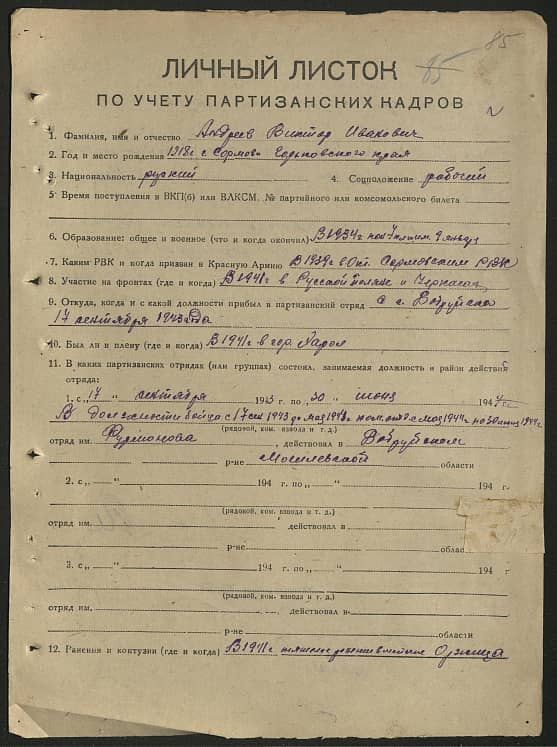 85
85
ЛИЧНЫЙ ЛИСТОК
ПО УЧЕТУ ПАРТИЗАНСКИХ КАДРОВ
1. Фамилия, имя и отчество Андреев Виктор Иванович
2. Год и место рождения 1918 г. с. Сормово Горьковского края
3. Национальность русский 4. Соцположение рабочий
5. Время поступления в ВКП(б) или ВЛКСМ. № партийного или комсомольского билета
6. Образование: общее и военное (что и когда окончил) В 1934 г
7. Каким РВК и когда призван в Красную Армию В 1939 г в Окт. Сормовским РВК
8. Участие на фронтах (где и когда) В 1941 г в Русской поляне и Черкасах
9. Откуда, когда и с какой должности прибыл в партизанский отряд с г. Бобруйска
17 сентября 1943 года
10. Был ли в плену (где и когда) В 1941 г в гор.
11. В каких партизанских отрядах (или группах) состоял, занимаемая должность и район действий
отряда:
1. с „17 " сентября 1943 г. по „30 " июнь 194 4 г
В должности бойца с 17 сен 1943 до мая 1944 с мая 1944 по 30 июня 1944 г
(рядовой, ком. взвода и т. д.)
отряд им. Фурманова, действовал в Бобруйском
р-не Могилевской области
2. с „ " 194 г. по „ " 194
(рядовой, ком. взвода и т. д.)
отряд им. действовал в
р-не облас
3. с „ " 194 г. по „ " 194 г
(рядовой, ком. взвода и т. д.)
отряд им. , действовал в
р-не области
12. Ранения и контузии (где и когда) В 1941 г. Оржица